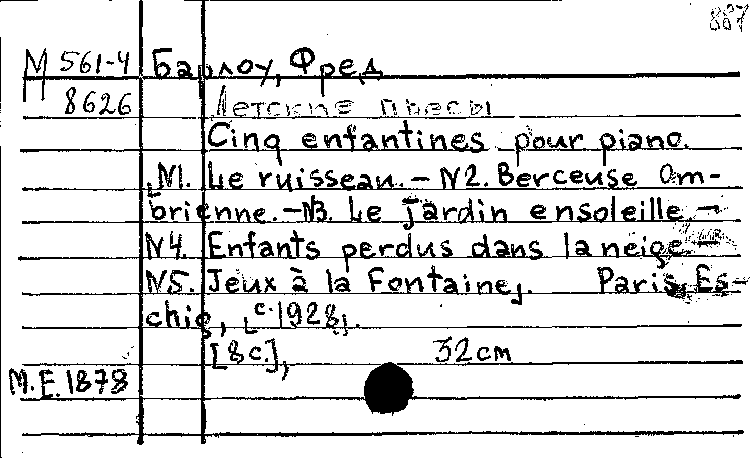 867
М 561-4 Барлоу, Фред
8626 Детские пьесы
Cinq enfantines pour piano.
N1. Le ruisseau. – N2. Berceuse om-
brienne. – N3. Le jardin ensoleille –
N4. Enfants perdus dans la neige –
N5. Jeux à la Fontaine]. Paris, Es-
chig, [c. 1928].
[8 c.], 32 cm
M.E. 1878